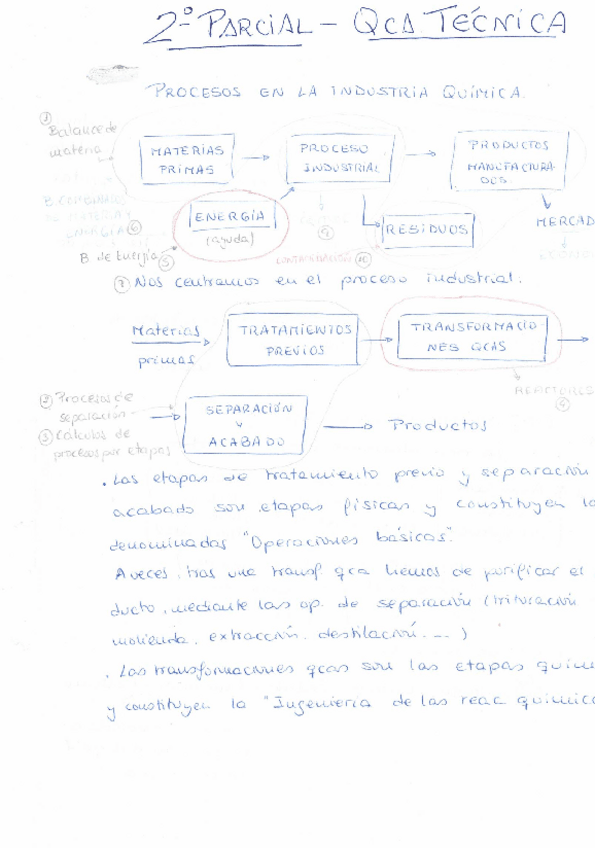 2º PARCIAL - QCA TÉCNICA
PROCESOS EN LA INDUSTRIA QUÍMICA.
① Balance de materia
MATERIAS PRIMAS
PROCESO INDUSTRIAL
PRODUCTOS MANUFACTURADOS.
ENERGÍA
(ayuda)
RESIDUOS
MERCAD
⑥
B de Energía ⑤
CONTAMINACIÓN ⑩
② Nos centramos en el proceso industrial:
Materias primas
TRATAMIENTOS PREVIOS
TRANSFORMACIO-
NES QCAS
REACTORES
② Procesos de separación
③ Cálculos de procesos por etapas
SEPARACIÓN
Y
ACABADO
Productos
. Las etapas de tratamiento previo y separación
acabado son etapas físicas y constituyen la
denominadas "Operaciones básicas".
A veces, tras una transf. qca hemos de purificar el
ducto, mediante las op. de separación (trituración
molienda, extracción, destilación, ...)
. Las transformaciones qcas son las etapas quím
y constituyen la "Ingeniería de las reac química